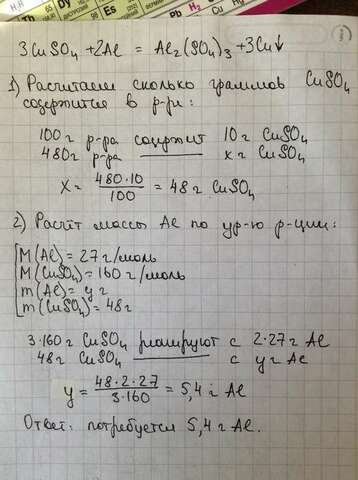 H₂
Dy
Es
Pb H₂ Cu Hg
3CuSO₄ + 2Al = Al₂(SO₄)₃ + 3Cu↓
1) Расчитаем сколько граммов CuSO₄
содержится в р-ри:
100г р-ра содержит 10г CuSO₄
480г р-ра x г CuSO₄
X = 480·10 / 100 = 48 г CuSO₄
2) Расчёт массы Al по ур-ю р-ции:
M(Al) = 27 г/моль
M(CuSO₄) = 160 г/моль
m(Al) = y г
m(CuSO₄) = 48г
3·160г CuSO₄ реагируют с 2·27г Al
48г CuSO₄ с y г Al
y = 48·2·27 / 3·160 = 5,4 г Al
Ответ: потребуется 5,4 г Al.